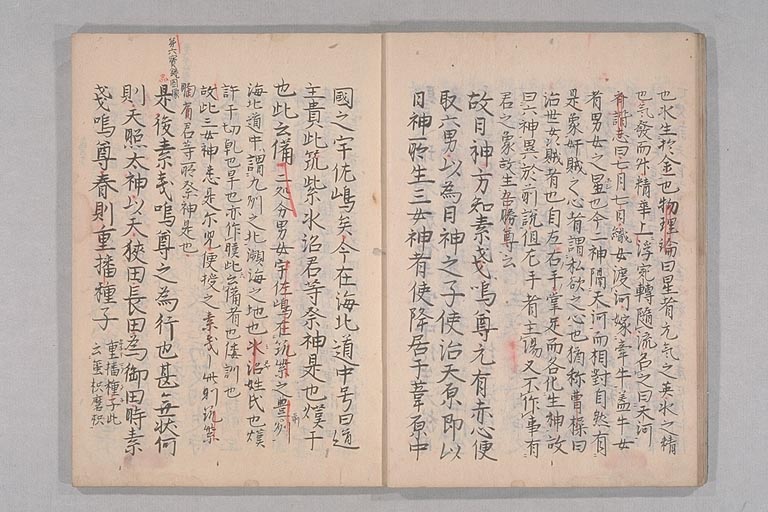 也水生於金也物理論曰星者元气之英水之精
也气發而升精華上浮宛轉隨流名之曰天河
曰七月七日織女渡河嫁牽牛盖牛女
者男女之星也今二神隔天河而相對自然有
是象奸賊之心者謂私欲之心也猶称曹操曰
治世賊者也自左右手掌是而各化生神故
曰六神異六於前説但左手者主陽又不作事有
君之象故生勝尊云
故日神方知素戔嗚尊元有赤心便
取六男以為日神之子使治天原即以
日神所生三女神者使降居于葦原中
國之宇佐嶋矣今在海北道中号曰道
主貴此筑紫水沼君等祭神是也熯于
也此云備二処分男女宇佐嶋在筑紫之豊列
海北道中謂九列之北瀕海之地也水沼姓氏也熯
許干切乾也旱也亦作膜此云備者也倭訓也
故此三女神悉是尓児便授之素戔此則筑紫
胸肩君等所祭神是也
第六寶鏡図像
是後素戔嗚尊之為行也甚無状何
則天照太神以天狹田長田為御田時素
戔嗚尊春則重播種子 重播種子此
云壷枳磨枳